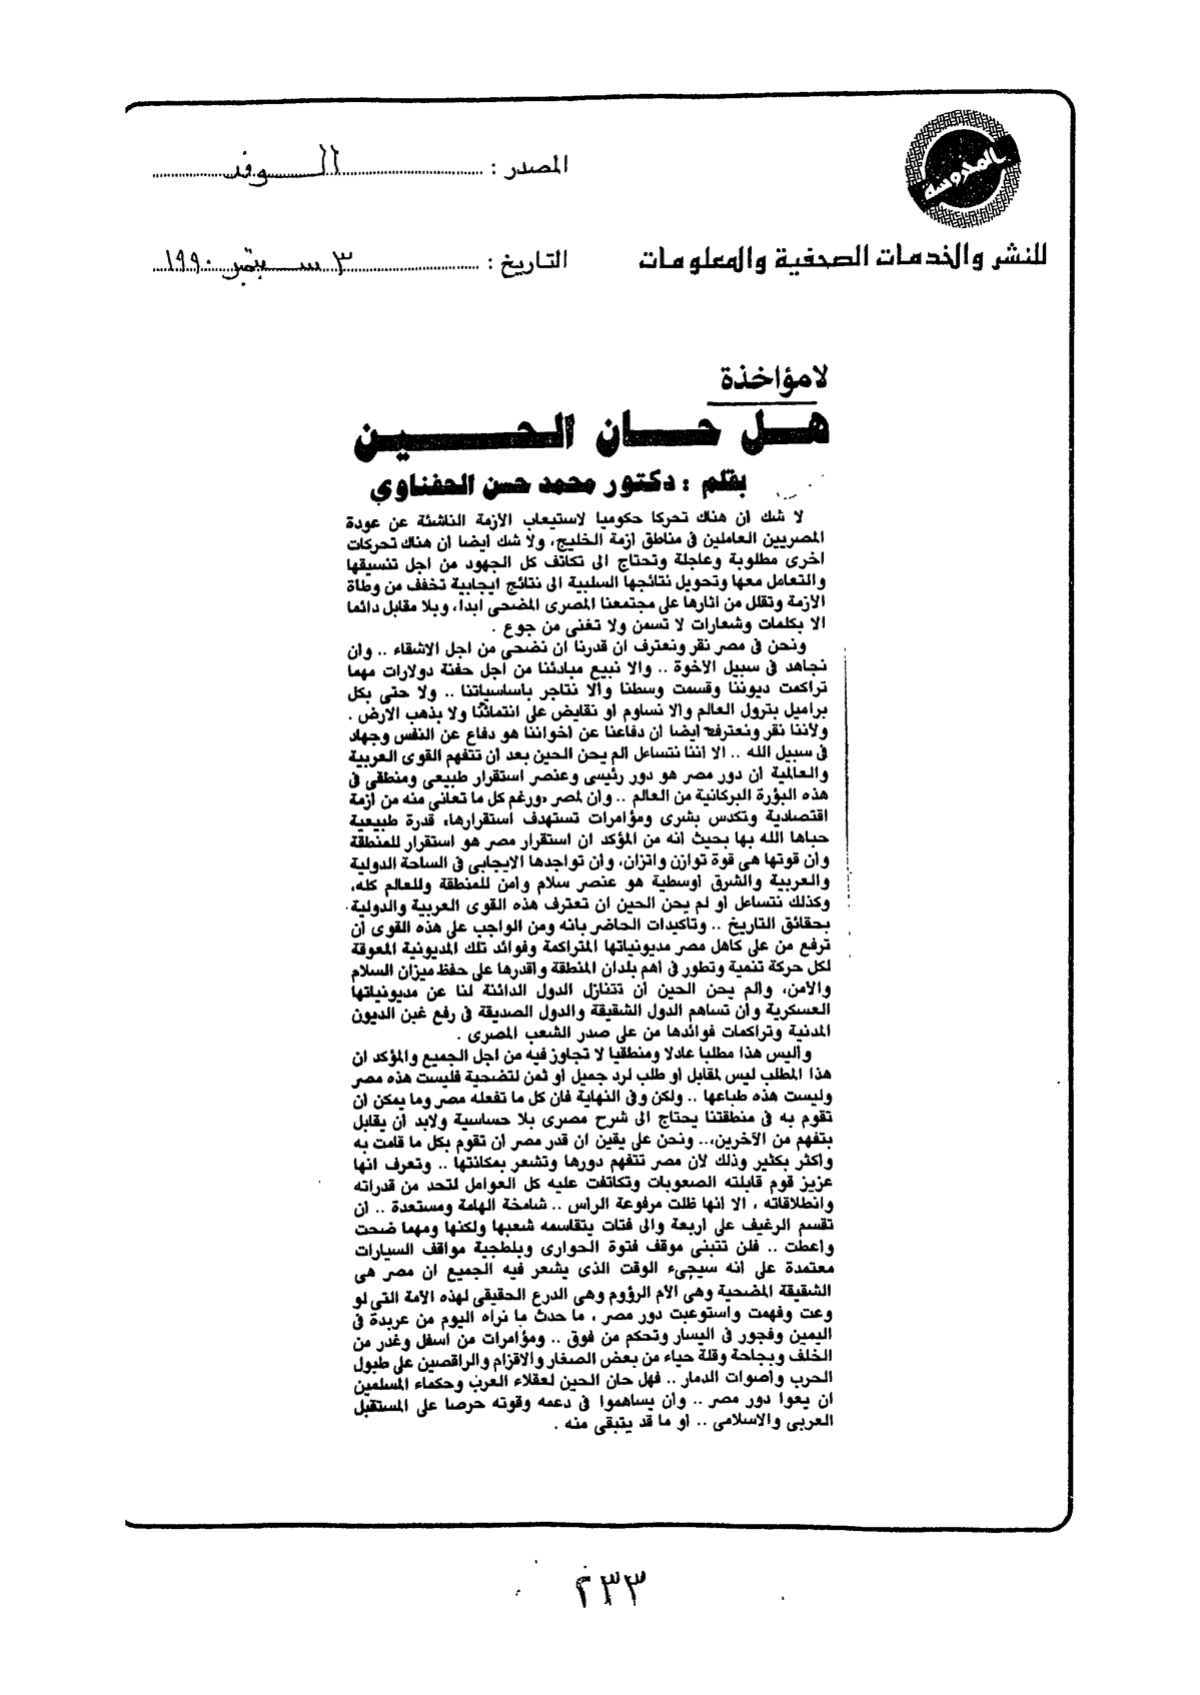 المحروسة
المصدر : الوفد
للنشر والخدمات الصحفية والمعلومات
التاريخ : ٣ سبتمبر ١٩٩٠
لامؤاخذة
هل حان الحين
بقلم : دكتور محمد حسن الحفناوي
لا شك ان هناك تحركا حكوميا لاستيعاب الازمة الناشئة عن عودة
المصريين العاملين فى مناطق ازمة الخليج، ولا شك ايضا ان هناك تحركات
اخرى مطلوبة وعاجلة وتحتاج الى تكاتف كل الجهود من اجل تنسيقها
والتعامل معها وتحويل نتائجها السلبية الى نتائج ايجابية تخفف من وطأة
الازمة وتقلل من اثارها على مجتمعنا المصرى المضحى ابدا، وبلا مقابل دائما
الا بكلمات وشعارات لا تسمن ولا تغنى من جوع .
ونحن فى مصر نقر ونعترف ان قدرنا ان نضحى من اجل الاشقاء .. وان
نجاهد فى سبيل الاخوة .. والا نبيع مبادئنا من أجل حفنة دولارات مهما
تراكمت ديوننا وقسمت وسطنا والا نتاجر باساسياتنا .. ولا حتى بكل
براميل بترول العالم والا نساوم او نقايض على انتمائنا ولا بذهب الارض .
ولاننا نقر ونعترف ايضا ان دفاعنا عن اخواننا هو دفاع عن النفس وجهاد
فى سبيل الله .. الا اننا نتساءل الم يحن الحين بعد ان تتفهم القوى العربية
والعالمية ان دور مصر هو دور رئيسى وعنصر استقرار طبيعى ومنطقى فى
هذه البؤرة البركانية من العالم .. وان لمصر ورغم كل ما تعانى منه من ازمة
اقتصادية وتكدس بشرى ومؤامرات تستهدف استقرارها، قدرة طبيعية
حباها الله بها بحيث انه من المؤكد ان استقرار مصر هو استقرار للمنطقة
وان قوتها هى قوة توازن واتزان، وان تواجدها الايجابى فى الساحة الدولية
والعربية والشرق اوسطية هو عنصر سلام وامن للمنطقة وللعالم كله،
وكذلك نتساءل او لم يحن الحين ان تعترف هذه القوى العربية والدولية
بحقائق التاريخ .. وتاكيدات الحاضر بانه ومن الواجب على هذه القوى ان
ترفع من على كاهل مصر مديونياتها المتراكمة وفوائد تلك المديونية المعوقة
لكل حركة تنمية وتطور فى اهم بلدان المنطقة واقدرها على حفظ ميزان السلام
والامن، والم يحن الحين ان تتنازل الدول الدائنة لنا عن مديونياتها
العسكرية وان تساهم الدول الشقيقة والدول الصديقة فى رفع غبن الديون
المدنية وتراكمات فوائدها من على صدر الشعب المصرى .
وأليس هذا مطلبا عادلا ومنطقيا لا تجاوز فيه من اجل الجميع والمؤكد ان
هذا المطلب ليس لمقابل أو طلب لرد جميل او ثمن لتضحية فليست هذه مصر
وليست هذه طباعها .. ولكن وفى النهاية فان كل ما تفعله مصر وما يمكن ان
تقوم به فى منطقتنا يحتاج الى شرح مصرى بلا حساسية ولابد أن يقابل
بتفهم من الآخرين.. ونحن على يقين ان قدر مصر ان تقوم بكل ما قامت به
واكثر بكثير وذلك لان مصر تتفهم دورها وتشعر بمكانتها .. وتعرف انها
عزيز قوم قابلته الصعوبات وتكاتفت عليه كل العوامل لتحد من قدراته
وانطلاقاته ، الا انها ظلت مرفوعة الراس .. شامخة الهامة ومستعدة .. ان
تقسم الرغيف على اربعة والى فتات يتقاسمه شعبها ولكنها ومهما ضحت
واعطت .. فلن تتبنى موقف فتوة الحوارى وبلطجية مواقف السيارات
معتمدة على انه سيجىء الوقت الذى يشعر فيه الجميع ان مصر هى
الشقيقة المضحية وهى الأم الرؤوم وهى الدرع الحقيقى لهذه الامة التى لو
وعت وفهمت واستوعبت دور مصر ، ما حدث ما نراه اليوم من عربدة فى
اليمين وفجور فى اليسار وتحكم من فوق .. ومؤامرات من اسفل وغدر من
الخلف وبجاحة وقلة حياء من بعض الصغار والاقزام والراقصين على طبول
الحرب وأصوات الدمار .. فهل حان الحين لعقلاء العرب وحكماء المسلمين
ان يعوا دور مصر .. وان يساهموا فى دعمه وقوته حرصا على المستقبل
العربى والاسلامى .. او ما قد يتبقى منه .
٢٣٣